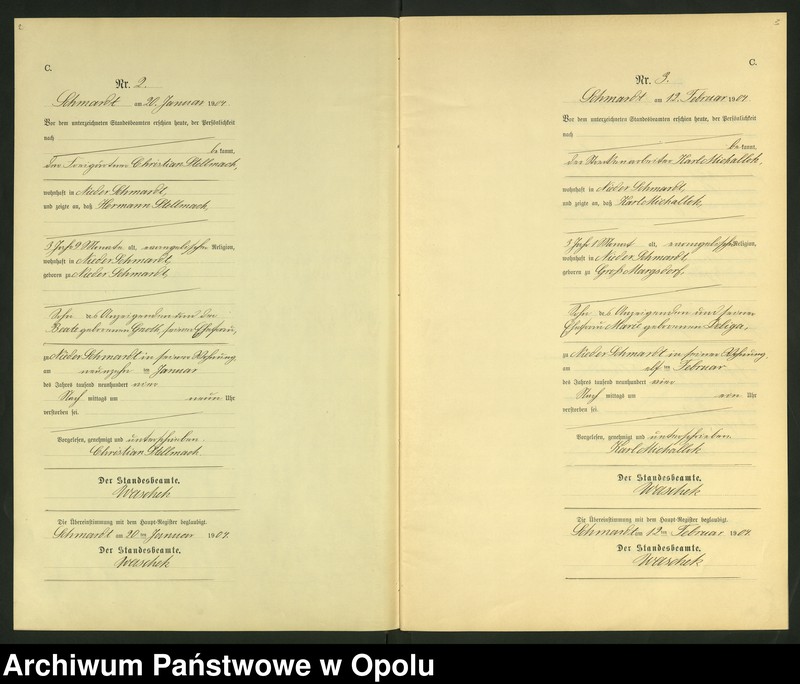 C.
Nr. 2.
Schmardt am 20. Januar 1904.
Vor dem unterzeichneten Standesbeamten erschien heute, der Persönlichkeit
nach
bekannt,
der Freigärtner Christian Stellmach,
wohnhaft in Nieder Schmardt,
und zeigte an, daß Hermann Stellmach,
3 Jahr 9 Monate alt, evangelischer Religion,
wohnhaft in Nieder Schmardt,
geboren zu Nieder Schmardt,
Sohn des Anzeigenden und der
Beate geborenen seiner Ehefrau,
zu Nieder Schmardt in seiner Wohnung
am neunzehn ten Januar
des Jahres tausend neunhundert vier
Nach mittags um neun Uhr
verstorben sei.
Vorgelesen, genehmigt und unterschrieben.
Christian Stellmach.
Der Standesbeamte.
Waschek
Die Übereinstimmung mit dem Haupt-Register beglaubigt.
Schmardt am 20 ten Januar 1904.
Der Standesbeamte.
Waschek
C.
Nr. 3.
Schmardt am 12. Februar 1904.
Vor dem unterzeichneten Standesbeamten erschien heute, der Persönlichkeit
nach
bekannt,
der Karl Michallek,
wohnhaft in Nieder Schmardt,
und zeigte an, daß Karl Michallek,
3 Jahr 1 Monat alt, evangelischer Religion,
wohnhaft in Nieder Schmardt,
geboren zu Groß Margsdorf,
Sohn des Anzeigenden und seiner
Ehefrau Marie geborenen Deliga,
zu Nieder Schmardt in seiner Wohnung,
am elf ten Februar
des Jahres tausend neunhundert vier
Nach mittags um Uhr
verstorben sei.
Vorgelesen, genehmigt und unterschrieben.
Karl Michallek
Der Standesbeamte.
Waschek
Die Übereinstimmung mit dem Haupt-Register beglaubigt.
Schmardt am 12 ten Februar 1904.
Der Standesbeamte.
Waschek
Archiwum Państwowe w Opolu